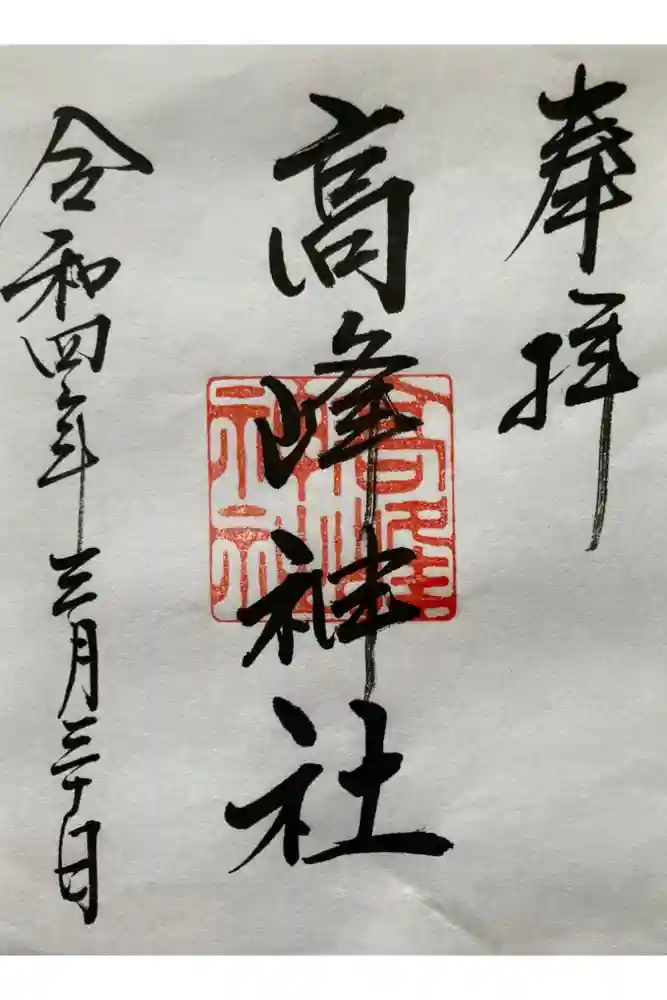 奉拝
高峰神社
高峰神社
令和四年三月三十日